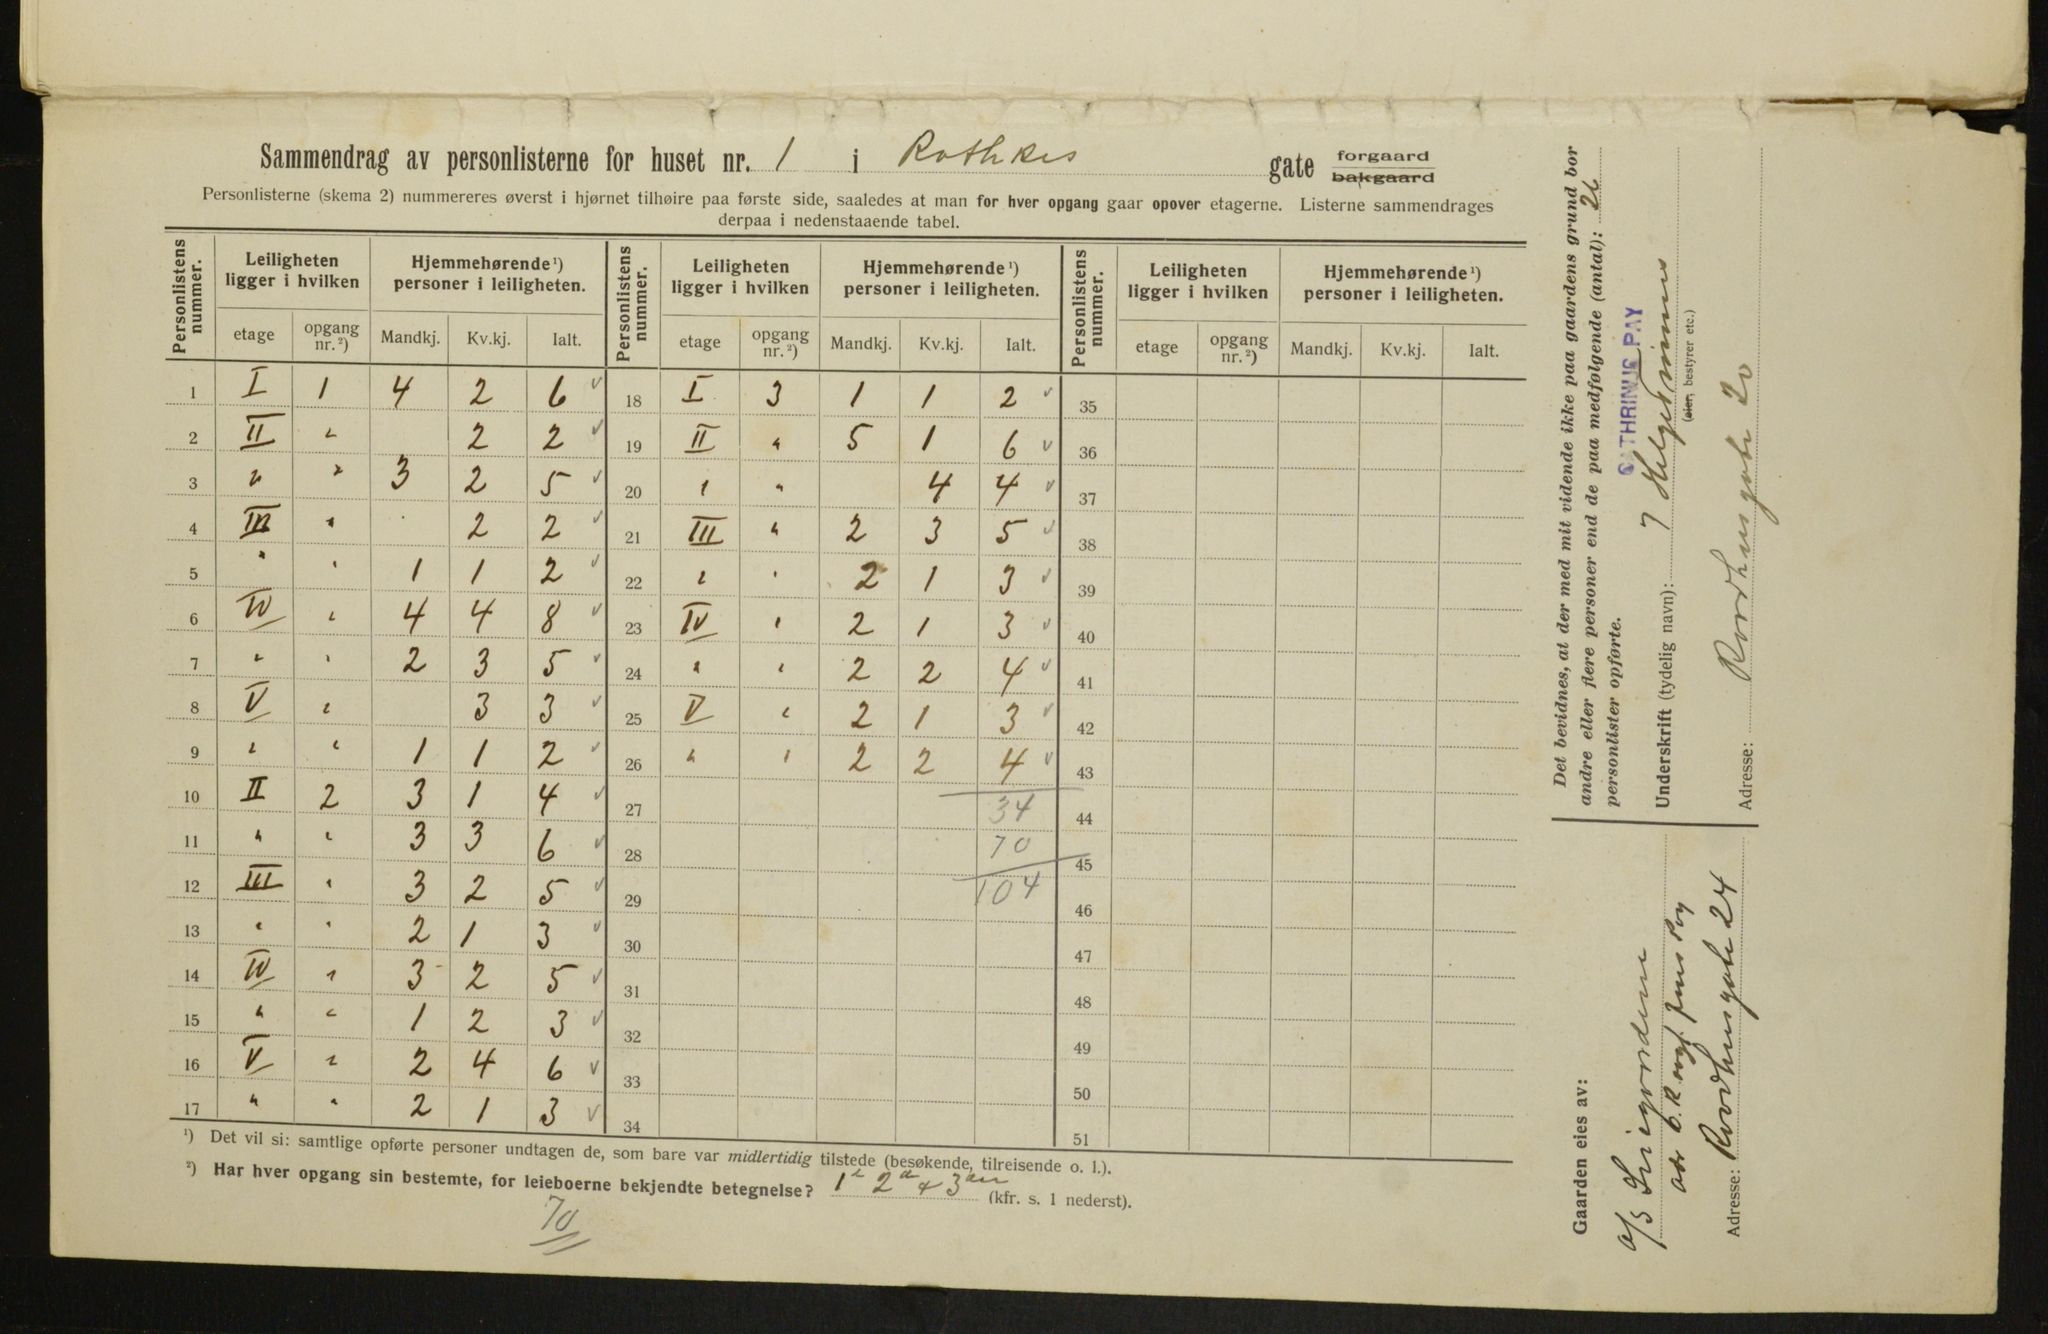 Sammendrag av personlisterne for huset nr. 1 i Rathkes gate forgaard bakgaard
Personlisterne (skema 2) nummereres øverst i hjørnet tilhøire paa første side, saaledes at man for hver opgang gaar opover etagerne. Listerne sammendrages
derpaa i nedenstaaende tabel.
Personlistens nummer. Leiligheten ligger i hvilken Hjemmehørende ¹) personer i leiligheten. Personlistens nummer. Leiligheten ligger i hvilken Hjemmehørende ¹) personer i leiligheten. Personlistens nummer. Leiligheten ligger i hvilken Hjemmehørende ¹) personer i leiligheten.
etage opgang nr. ²) Mandkj. Kv.kj. Ialt. etage opgang nr. ²) Mandkj. Kv.kj. Ialt. etage opgang nr. ²) Mandkj. Kv.kj. Ialt.
1 I 1 4 2 6 √ 18 I 3 1 1 2 √ 35
2 II " 2 2 √ 19 II " 5 1 6 √ 36
3 " " 3 2 5 √ 20 " " 4 4 √ 37
4 III " 2 2 √ 21 III " 2 3 5 √ 38
5 " " 1 1 2 √ 22 " " 2 1 3 √ 39
6 IV " 4 4 8 √ 23 IV " 2 1 3 √ 40
7 " " 2 3 5 √ 24 " " 2 2 4 √ 41
8 V " 3 3 √ 25 V " 2 1 3 √ 42
9 " " 1 1 2 √ 26 " " 2 2 4 √ 43
10 II 2 3 1 4 √ 27 34 44
11 " " 3 3 6 √ 28 70 45
12 III " 3 2 5 √ 29 104 46
13 " " 2 1 3 √ 30 47
14 IV " 3 2 5 √ 31 48
15 " " 1 2 3 √ 32 49
16 V " 2 4 6 √ 33 50
17 " " 2 1 3 √ 34 51
¹) Det vil si: samtlige opførte personer undtagen de, som bare var midlertidig tilstede (besøkende, tilreisende o. l.).
²) Har hver opgang sin bestemte, for leieboerne bekjendte betegnelse? 1 2 3 (kfr. s. 1 nederst).
70
Det bevidnes, at der med mit vidende ikke paa gaardens grund bor
andre eller flere personer end de paa medfølgende (antal): 26
personlister opførte.
CATHRINUS PAY
Underskrift (tydelig navn):
(eier, bestyrer etc.)
Adresse: Raadhusgate 20
Gaarden eies av:
A/S
Adresse: Raadhusgate 24